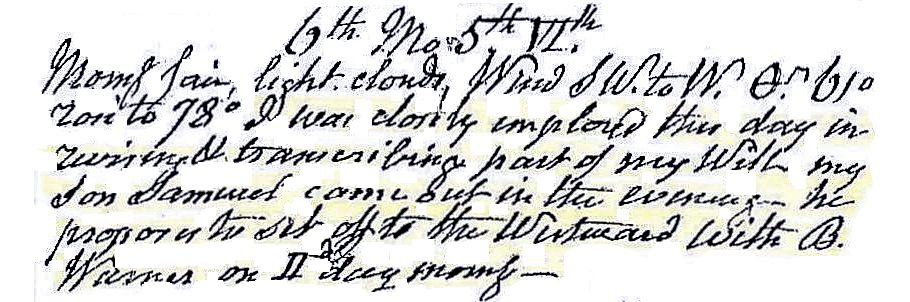 6th Mo. 5th VI.th
Morng fair, light clouds, Wind SW. to W. 61°
rose to 78° I was closely employed this day in
revising & transcribing part of my Will my
Son Samuel came out in the evening he
proposes to set off to the Westward with B.
Warner on IId day morng